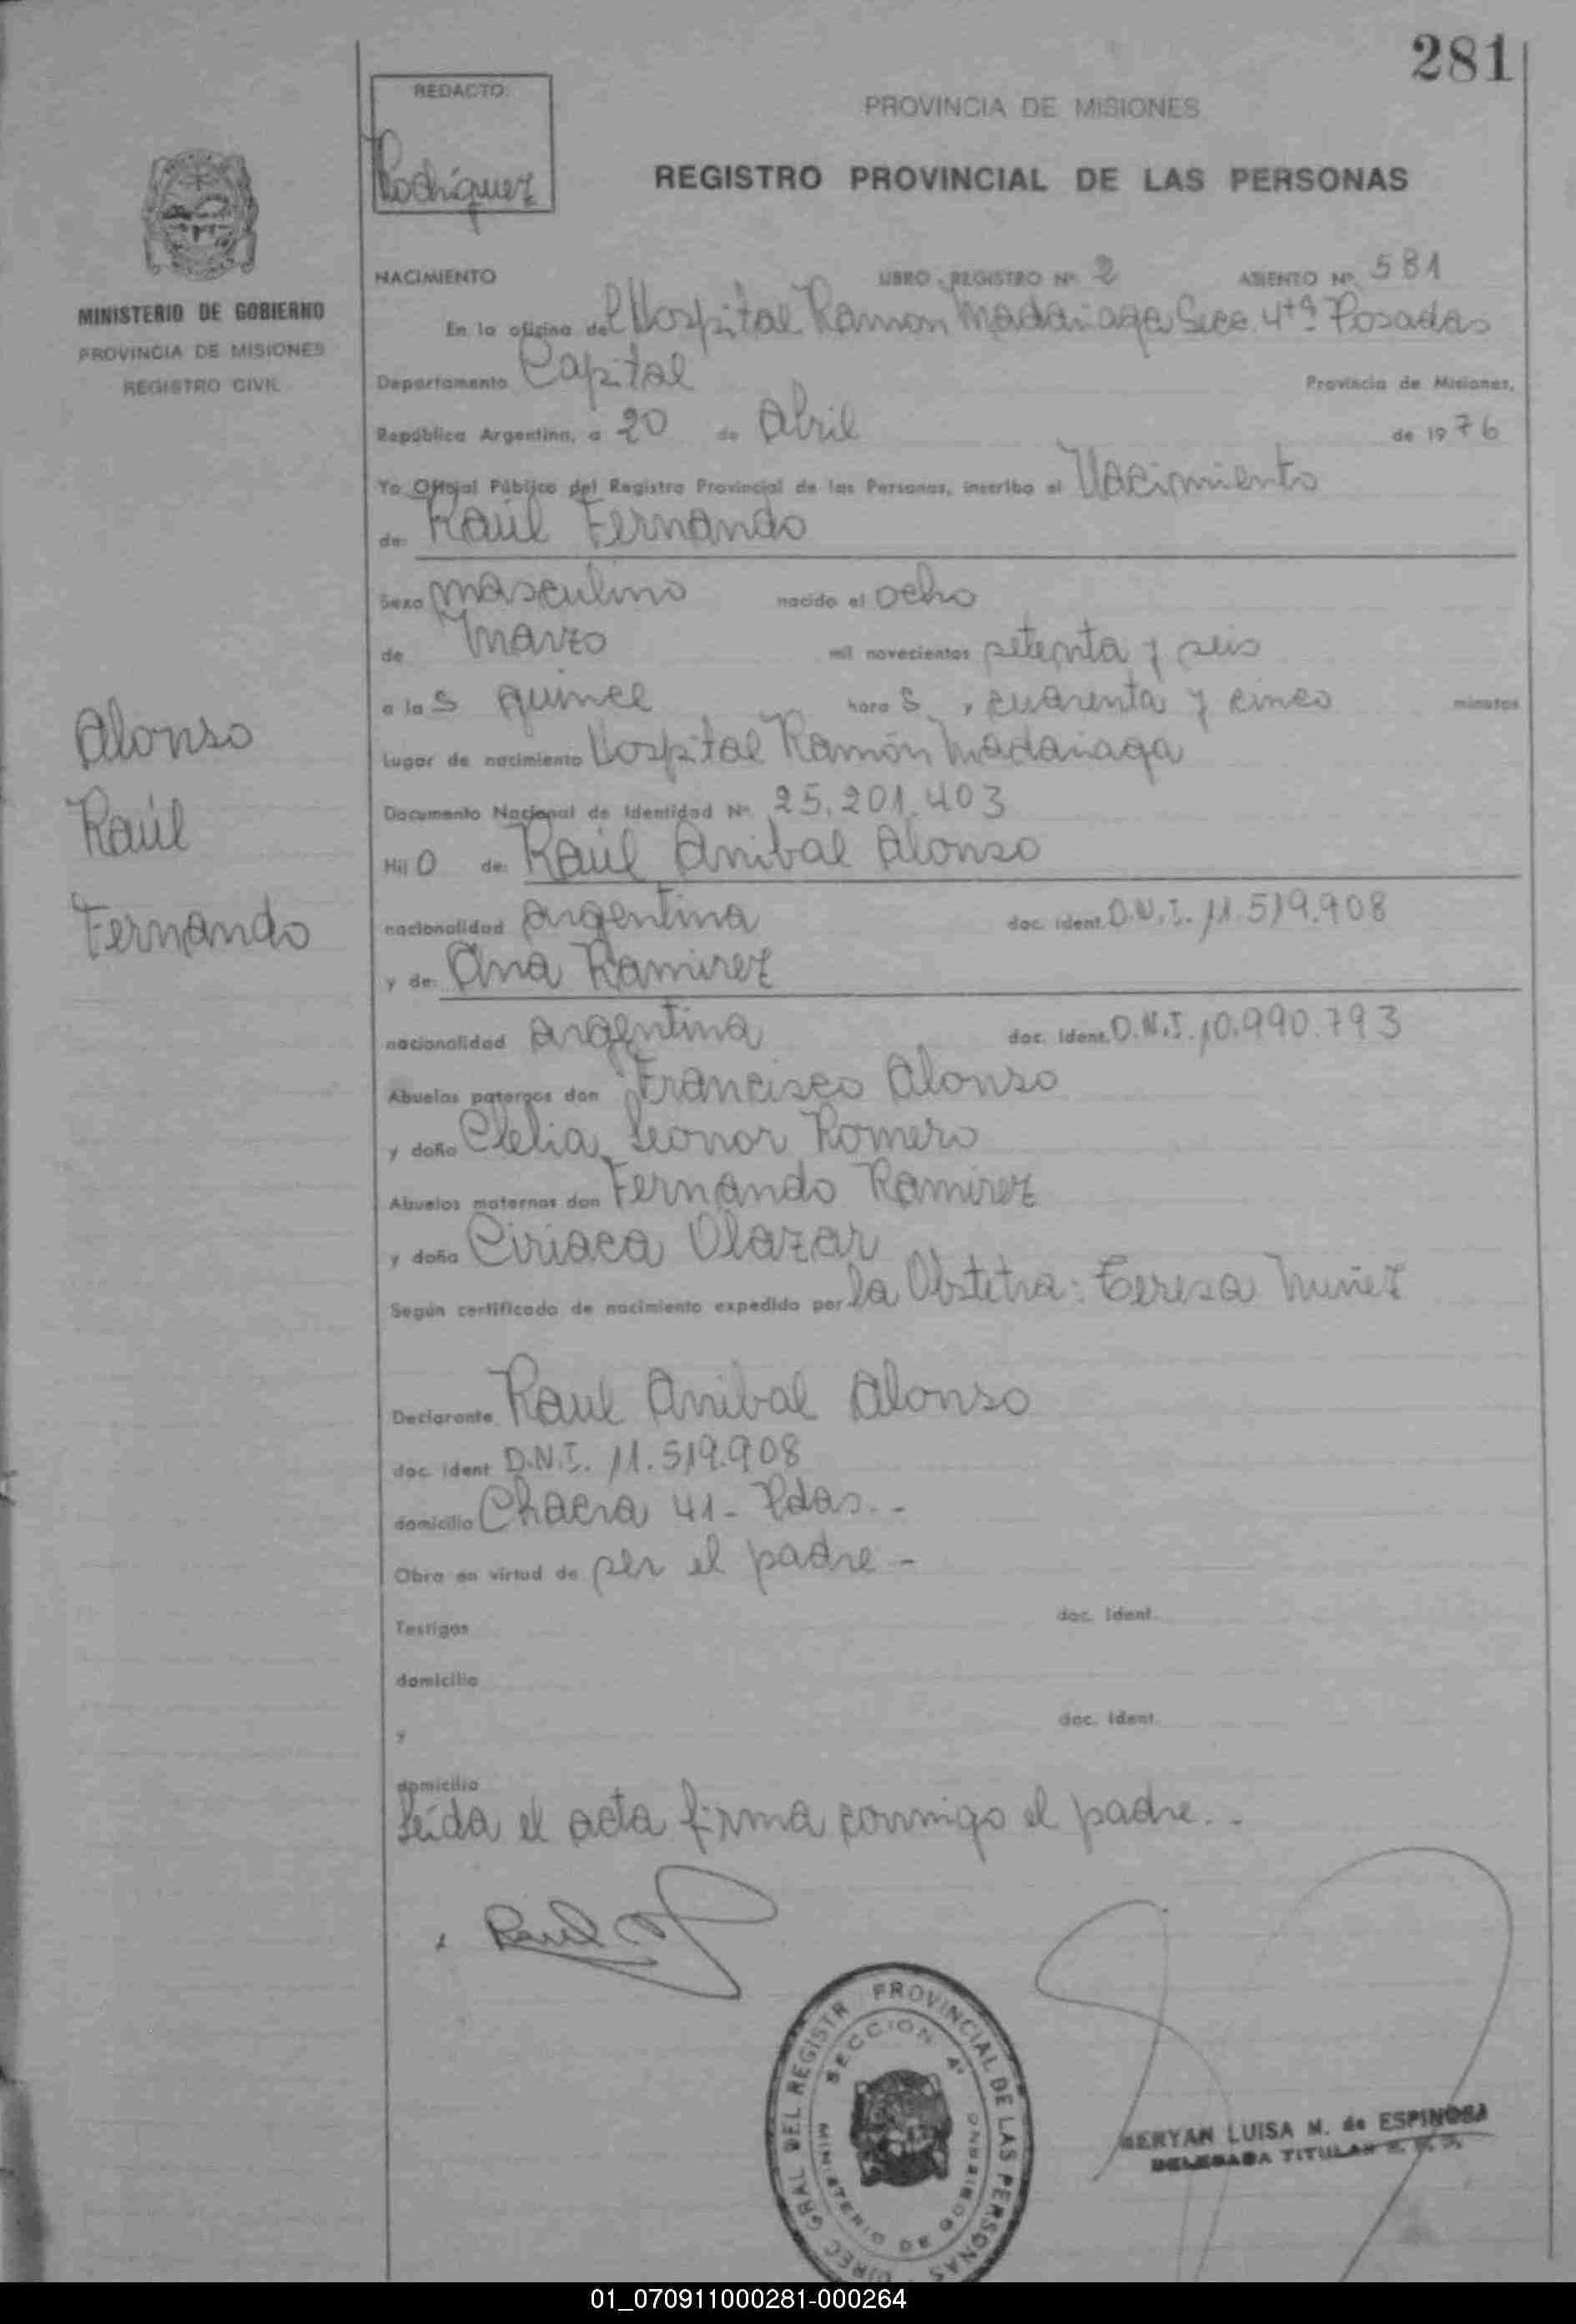 281
REDACTO:
Rodríguez
PROVINCIA DE MISIONES
REGISTRO PROVINCIAL DE LAS PERSONAS
MINISTERIO DE GOBIERNO
PROVINCIA DE MISIONES
REGISTRO CIVIL
NACIMIENTO LIBRO REGISTRO Nº 2 ASIENTO Nº 581
En la oficina del Hospital Ramon Madariaga Secc. 4ta Posadas
Departamento Capital Provincia de Misiones,
República Argentina, a 20 de Abril de 1976
Yo Oficial Público del Registro Provincial de las Personas, inscribo el Nacimiento
de: Raúl Fernando
Sexo masculino nacido el ocho
de Marzo mil novecientos setenta y seis
a las quince horas, cuarenta y cinco minutos
Lugar de nacimiento Hospital Ramón Madariaga
Documento Nacional de Identidad Nº 25.201.403
Hijo de: Raúl Anibal Alonso
nacionalidad argentina doc. ident. D.N.I. 11.519.908
y de: Ana Ramirez
nacionalidad argentina doc. ident. D.N.I. 10.990.793
Abuelos paternos don Francisco Alonso
y doña Clelia Leonor Romero
Abuelos maternos don Fernando Ramirez
y doña Ciriaca Olazar
Según certificado de nacimiento expedido por la Obstetra: Teresa Nuñez
Declarante Raul Anibal Alonso
doc. ident D.N.I. 11.519.908
domicilio Chacra 41 - Pdas. -
Obra en virtud de ser el padre -
Testigos doc. ident.
domicilio
y doc. ident.
domicilio
Leída el acta firma conmigo el padre. -
Alonso
Raúl
Fernando
Raul
DIREC GRAL DEL REGISTR PROVINCIAL DE LAS PERSONAS
SECCION 4ª
MINISTERIO DE GOBIERNO
MERYAN LUISA M. de ESPINOSA
DELEGADA TITULAR
01_070911000281-000264